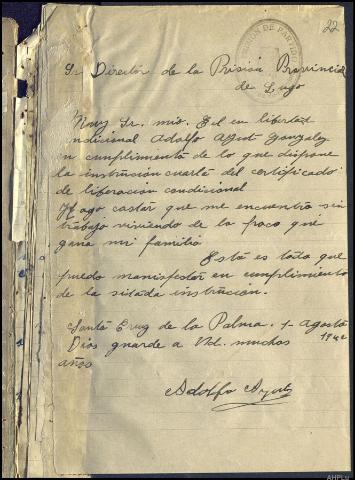 22
PRISION DE PARTIDO
Sr. Director de la Prisión Provincial
de Lugo
Muy Sr. mio. El en libertad
ndicional Adolfo Ayut Gonzalez
n cumplimiento de lo que dispone
la instrucion cuarta del certificado
de liberación condicional
Hago costar que me encuentro sin
trabajo viviendo de lo poco que
gana mi familia
Esta es todo que
puedo manispestar en cumplimiento
de la sitada instrucion.
Santa Cruz de la Palma. 1- agosto
1942
Dios guarde a Vd. muchos
años
Adolfo Ayut
AHPLu